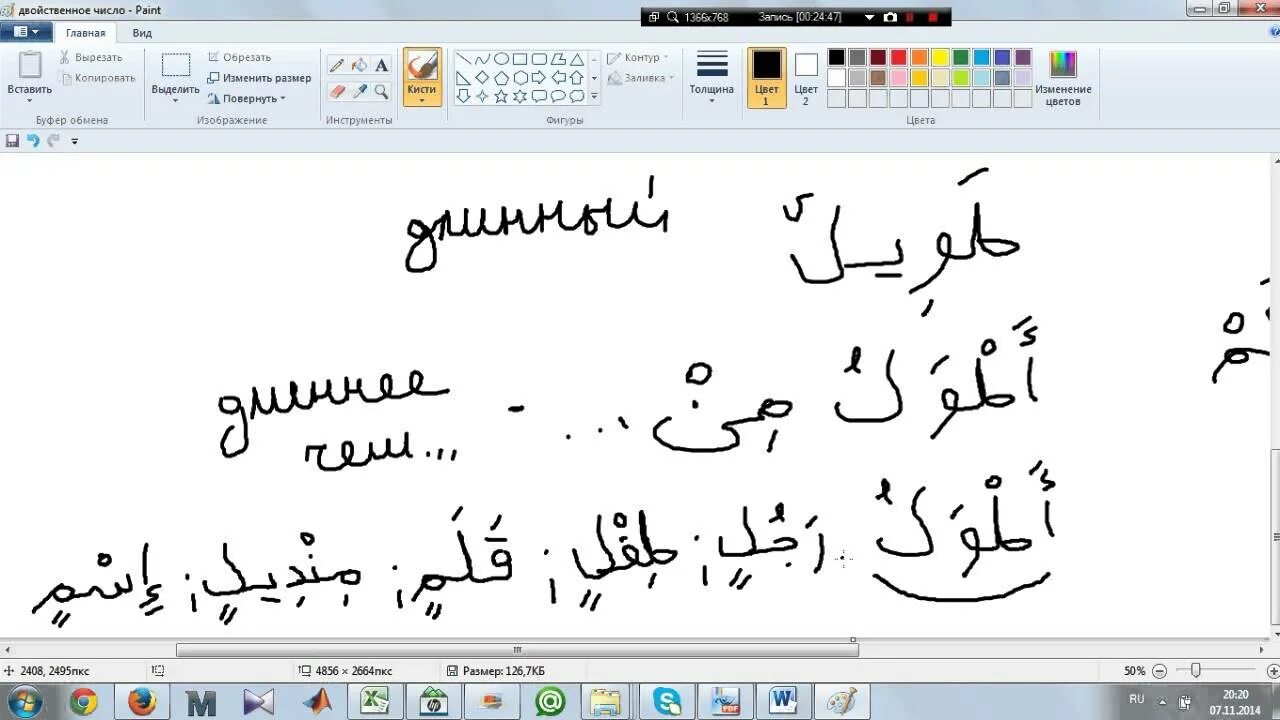 двойственное число - Paint
1366x768 Запись [00:24:47]
Главная Вид
Вставить
Вырезать
Копировать
Буфер обмена
Выделить
Обрезать
Изменить размер
Повернуть
Изображение
Инструменты
Кисти
Контур
Заливка
Фигуры
Толщина
Цвет 1
Цвет 2
Изменение цветов
Цвета
длинный طَوِيلٌ
длиннее чем... - ... أَطْوَلُ مِنْ
أَطْوَلُ رَجُلٍ; طِفْلٍ; قَلَمٍ; مِنْدِيلٍ; إِسْمٍ
2408, 2495пкс 4856 × 2664пкс Размер: 126,7КБ 50%
RU 20:20
07.11.2014